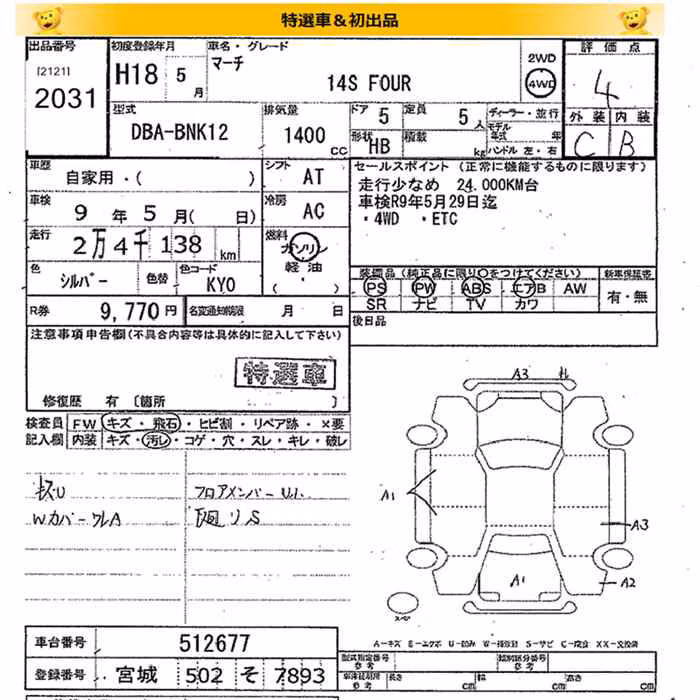 特選車＆初出品
出品番号
[2121]
2031
初度登録年月
H18 5月
車名・グレード
マーチ
14S FOUR
2WD
4WD
評価点
4
外装 内装
C B
型式
DBA-BNK12
排気量
1400 CC
ドア 5
定員 5人
形状 HB
積載 kg
ディーラー・並行
モデル年式 年
ハンドル 左・右
車歴
自家用・( )
シフト AT
車検
9年5月( 日)
冷房 AC
走行
2万4千138km
燃料
ガソリン
軽油
( )
色
シルバー
色替
色コード
KY0
R券 9,770円
名変通知期限 月 日
セールスポイント（正常に機能するものに限ります）
走行少なめ 24.000KM台
車検R9年5月29日迄
・4WD ・ETC
装備品（純正品に限り○をつけてください）
PS PW ABS エアB AW
SR ナビ TV カワ
新車保証書
有・無
後日品
注意事項申告欄(不具合内容等は具体的に記入して下さい)
特選車
修復歴 有〔箇所 〕
検査員記入欄
FW キズ・飛石・ヒビ割・リペア跡・×要
内装 キズ・汚レ・コゲ・穴・スレ・キレ・破レ
Wカバー ワレA
フロアメンバーU.
A3
A1
A3
A1
A2
スペア
A－キズ E－エクボ U－凹み W－補修跡 S－サビ C－腐食 XX－交換済
車台番号 512677
登録番号 宮城 502 そ 7893
型式指定番号 参考
類別区分番号 参考
長さ cm 幅 cm 高さ cm